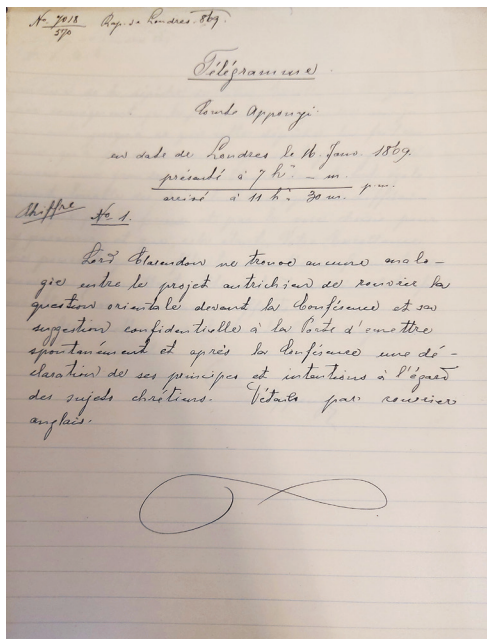 No. 7018/570 Rap. de Londres 869.
Télégramme
Comte Apponyi.
en date de Londres le 16 Janv. 1869.
présenté à 7 h. – m.
arrivé à 11 h. 30 m. p.m.
Chiffre No 1.
Lord Clarendon ne trouve aucune analo-
gie entre le projet autrichien de rouvrir la
question orientale devant la Conférence et sa
suggestion confidentielle à la Porte d'émettre
spontanément et après la Conférence une dé-
claration de ses principes et intentions à l'égard
des sujets chrétiens. Détails par courrier
anglais.